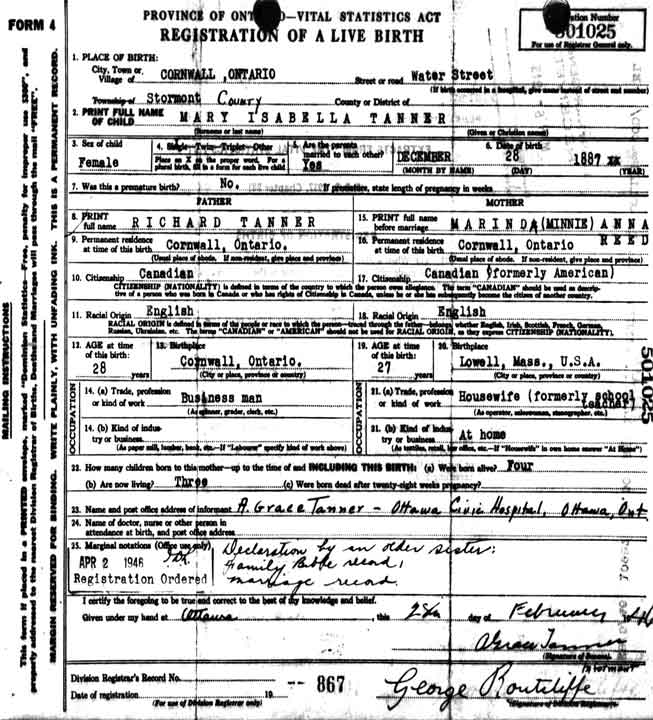 FORM 4
PROVINCE OF ONTARIO—VITAL STATISTICS ACT
REGISTRATION OF A LIVE BIRTH
Registration Number
501025
For use of Registrar General only.
1. PLACE OF BIRTH:
City, Town or Village of CORNWALL, ONTARIO Street or road Water Street
(If birth occurred in a hospital, give name instead of street and number)
Township of Stormont County County or District of
2. PRINT FULL NAME OF CHILD MARY ISABELLA TANNER
(Surname or last name) (Given or Christian names)
3. Sex of child Female
4. Single—Twin—Triplet—Other
Place an X on the proper word. For a plural birth, fill in a form for each live child
5. Are the parents married to each other? Yes
6. Date of birth
DECEMBER 28 1887
(MONTH BY NAME) (DAY) (YEAR)
7. Was this a premature birth? No. If premature, state length of pregnancy in weeks
FATHER
8. PRINT full name RICHARD TANNER
9. Permanent residence at time of this birth Cornwall, Ontario.
(Usual place of abode. If non-resident, give place and province)
MOTHER
15. PRINT full name before marriage MARINDA (MINNIE) ANNA REED
16. Permanent residence at time of this birth Cornwall, Ontario
(Usual place of abode. If non-resident, give place and province)
10. Citizenship Canadian
17. Citizenship Canadian (formerly American)
CITIZENSHIP (NATIONALITY) is defined in terms of the country to which the person owes allegiance. The term "CANADIAN" should be used as descriptive of a person who was born in Canada or who has rights of Citizenship in Canada, unless he or she has subsequently become the citizen of another country.
11. Racial Origin English
18. Racial Origin English
RACIAL ORIGIN is defined in terms of the people or race to which the person—traced through the father—belongs, whether English, Irish, Scottish, French, German, Russian, Ukrainian, etc. The terms "CANADIAN" or "AMERICAN" should not be used for RACIAL ORIGIN, as they express CITIZENSHIP (NATIONALITY).
12. AGE at time of this birth 28 years
13. Birthplace Cornwall, Ontario.
(City or place, province or country)
19. AGE at time of this birth 27 years
20. Birthplace Lowell, Mass., U.S.A.
(City or place, province or country)
OCCUPATION
14. (a) Trade, profession or kind of work Business man
(As spinner, grader, clerk, etc.)
14. (b) Kind of industry or business
(As paper mill, lumber, bank, etc.—If "Labourer" specify kind of work above)
OCCUPATION
21. (a) Trade, profession or kind of work Housewife (formerly school teacher)
(As operator, saleswoman, stenographer, etc.)
21. (b) Kind of industry or business At home
(As textiles, retail, law office, etc.—If "Housewife" in own home answer "At Home")
22. How many children born to this mother—up to the time of and INCLUDING THIS BIRTH: (a) Were born alive? Four
(b) Are now living? Three (c) Were born dead after twenty-eight weeks pregnancy?
23. Name and post office address of informant A. Grace Tanner – Ottawa Civic Hospital, Ottawa, Ont
24. Name of doctor, nurse or other person in attendance at birth, and post office address
25. Marginal notations (Office use only)
APR 2 1946
Registration Ordered
Declaration by an older sister;
Family Bible record,
marriage record.
I certify the foregoing to be true and correct to the best of my knowledge and belief.
Given under my hand at Ottawa, this day of February
A Grace Tanner
(Signature of Informant)
Informant
Division Registrar's Record No.
Date of registration 19
(For use of Division Registrar only)
-- 867
George Routcliffe
(Signature of Division Registrar)
501025
MAILING INSTRUCTIONS
MARGIN RESERVED FOR BINDING. WRITE PLAINLY, WITH UNFADING INK. THIS IS A PERMANENT RECORD.